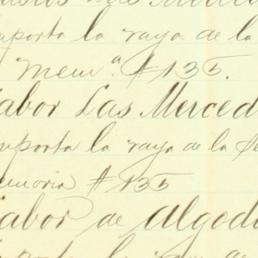 mporta la raya de la
Mem.ª #135.
abor Las Merced
mporta la raya de la Se
emoria #135
abor de algod